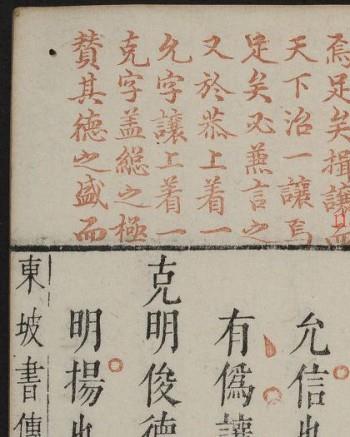 焉足矣揖讓
天下治一讓焉
足矣必兼言之
又於恭上着一
允字讓上着一
克字盖総之極
賛其德之盛而
允信也
有爲讓
克明俊德
明揚也
東坡書傳